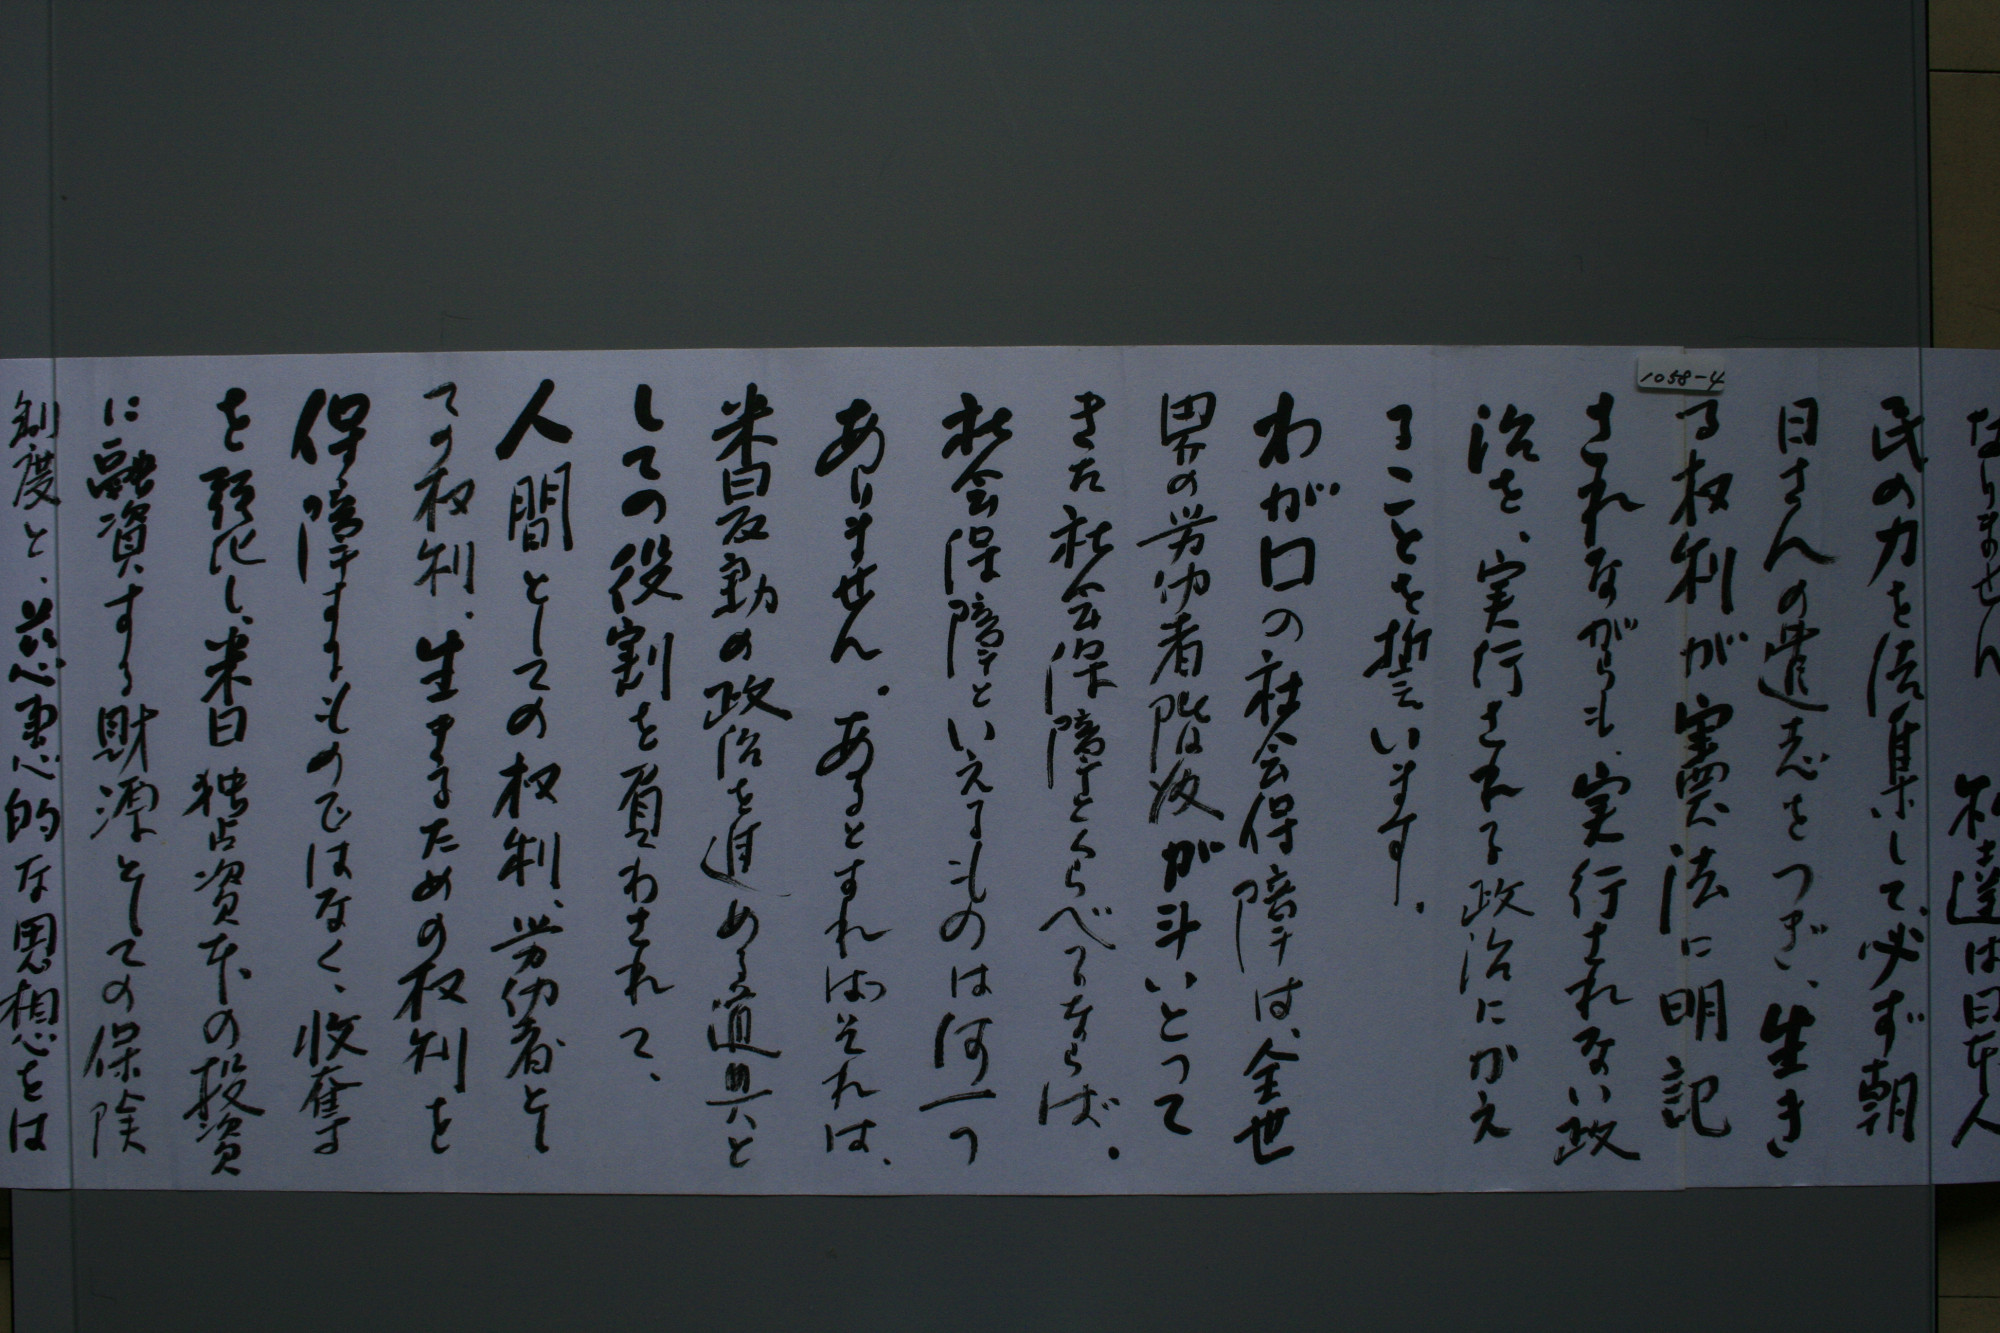 なりません 私達は日本人
民の力を結集して、必ず朝
日さんの遺志をつぎ、生き
る权利が憲法に明記
されながらも、実行されない政
治を、実行される政治にかえ
ることを誓います。
わが口の社会保障は、全世
界の労仂者階級が斗いとって
きた社会保障とくらべるならば。
社会保障といえるものは何一つ
ありません。あるとすればそれは、
米日反動の政治を進める道具と
しての役割を負わされて、
人間としての权利、労仂者とし
ての权利、生きるための权利を
保障するものではなく、收奪す
を強化し、米日独占資本の投資
に融資する財源としての保険
制度と、慈恵的な思想をは
1058-4